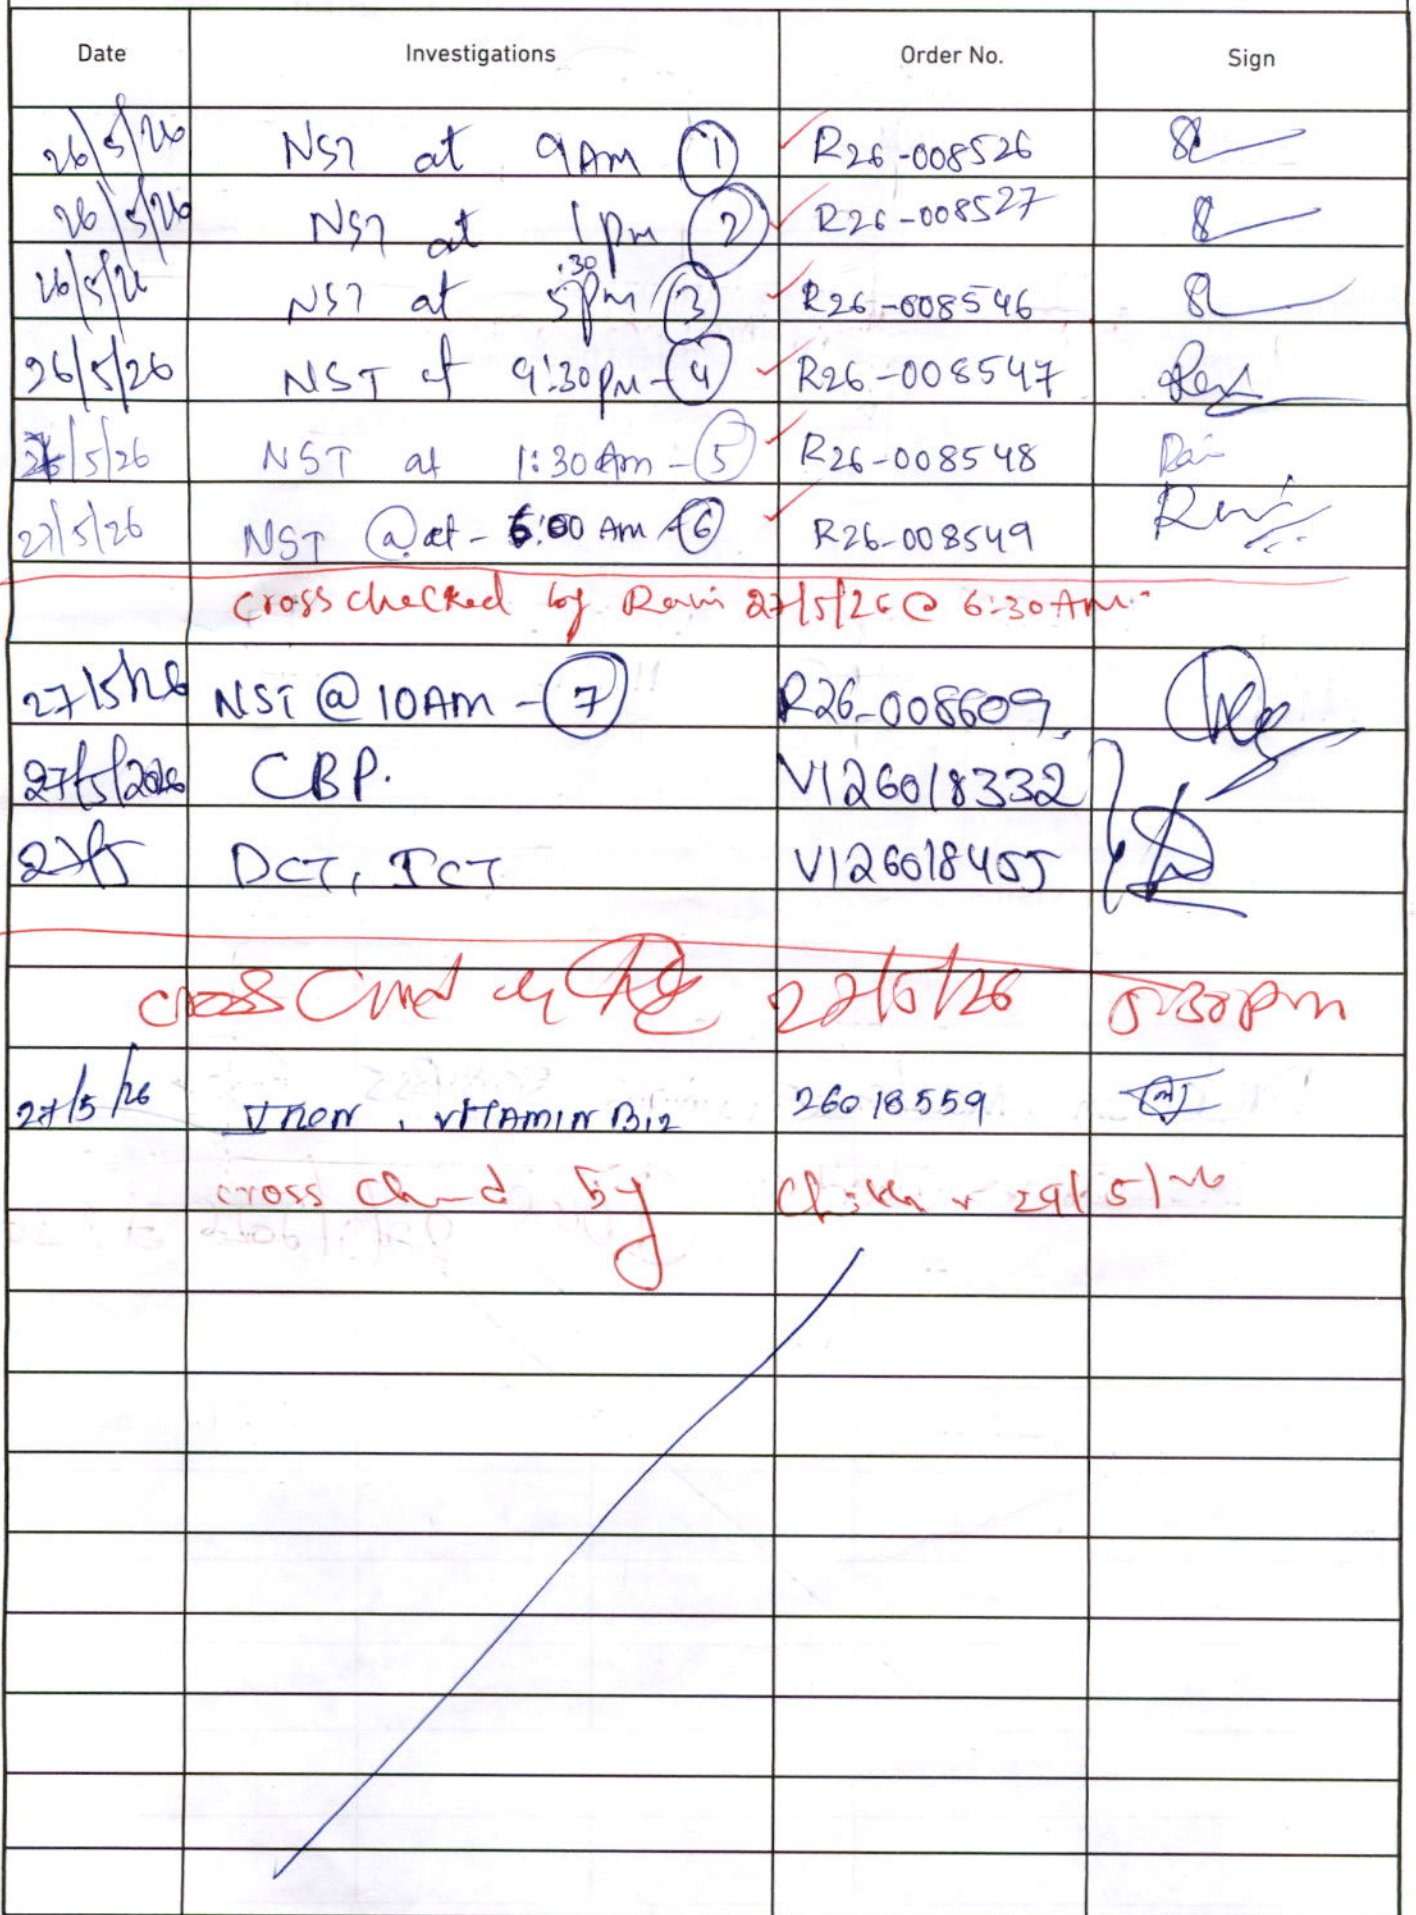 Date Investigations Order No. Sign
26/5/26 NST at 9AM 1 R26-008526
26/5/26 NST at 1pm 2 R26-008527
26/5/26 NST at 5.30pm 3 R26-008546
26/5/26 NST at 9:30pm - 4 R26-008547
/5/26 NST at 1:30Am - 5 R26-008548 Ravi
27/5/26 NST @ at - 6:00 Am - 6 R26-008549 Ravi
cross checked by Ravi 27/5/26 @ 6:30 Am
27/5/26 NST @ 10AM - 7 R26-008609
27/5/2026 CBP. V126018332
27/5 DCT, ICT V126018455
cross by 27/5/26 5:30pm
27/5/26 IRON, VITAMIN B12 26018559
cross by 29/5/26